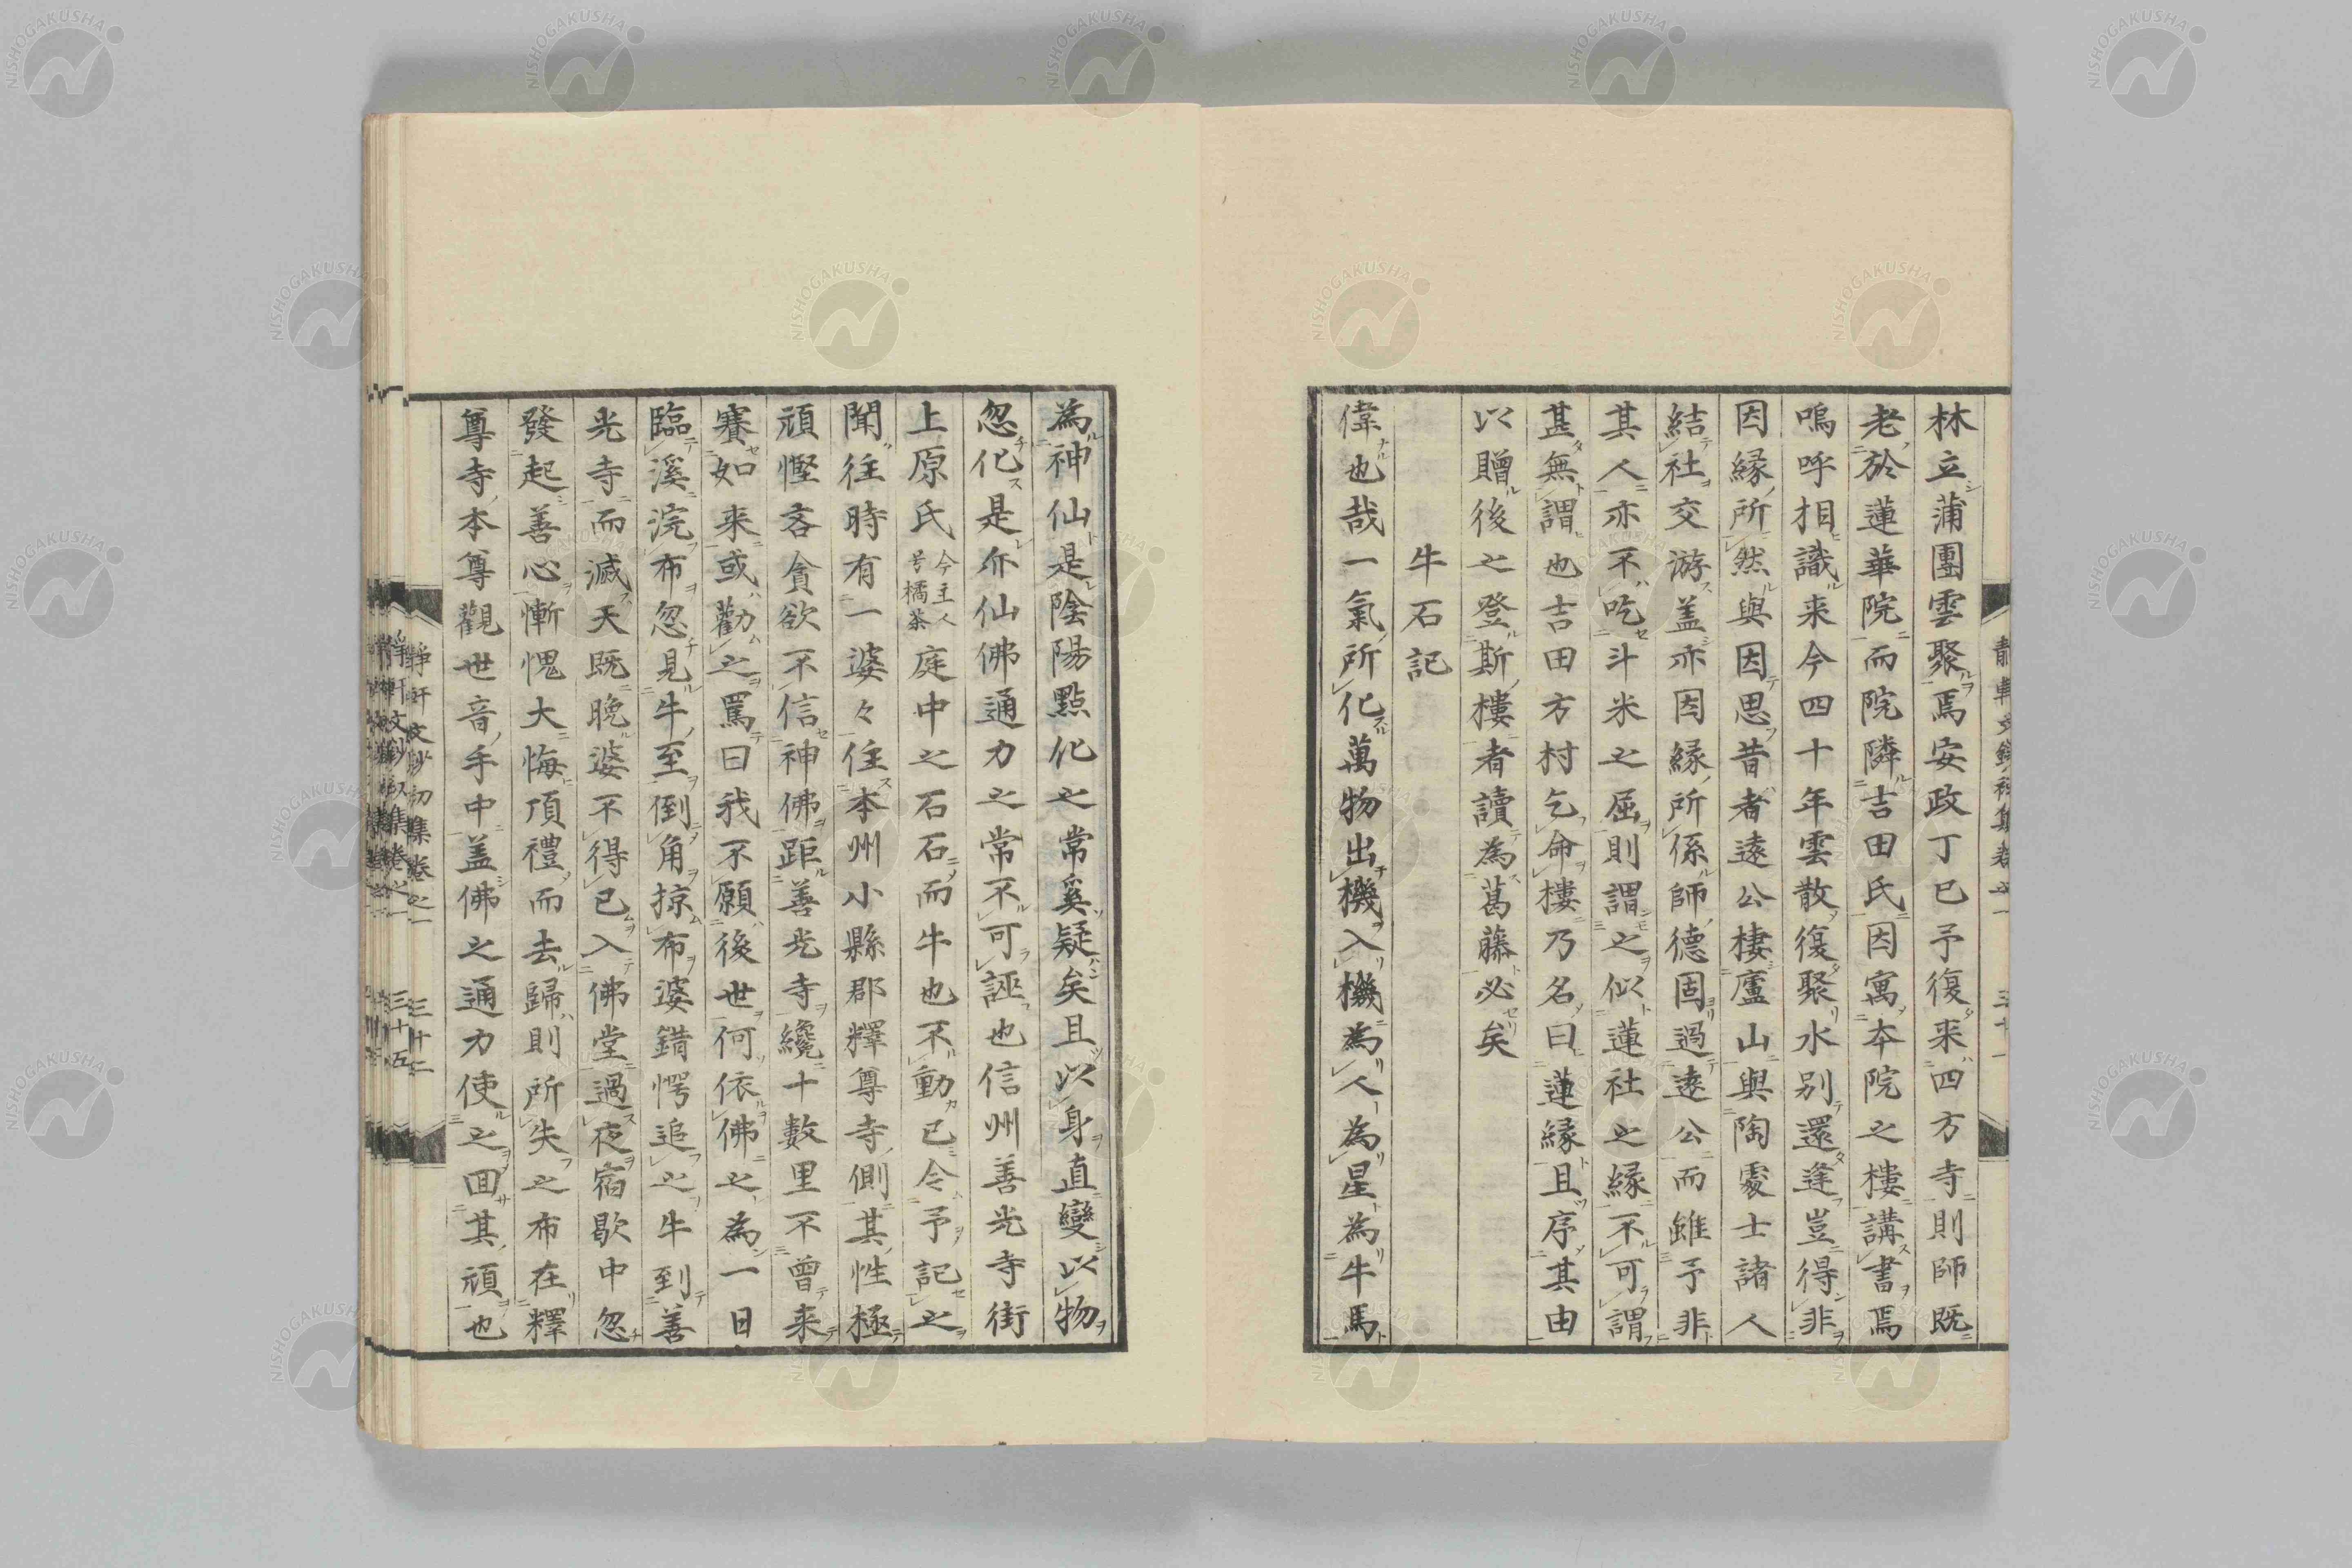 林立蒲團雲聚焉安政丁巳予復来四方寺則師既
老於蓮華院而院隣吉田氏因寓本院之樓講書焉
嗚呼相識来今四十年雲散復聚水別還逢豈得非
因縁所然與因思昔者遠公棲廬山與陶處士諸人
結社交游盖亦因縁所係師德固過遠公而雖予非
其人亦不吃斗米之屈則謂之似蓮社之縁不可謂
甚無謂也吉田方村乞命樓乃名曰蓮縁且序其由
以贈後之登斯樓者讀為葛藤必矣
牛石記
偉也哉一氣所化萬物出機入機為人為星為牛馬
為神仙是陰陽點化之常奚疑矣且以身直變以物
忽化是亦仙佛通力之常不可誣也信州善光寺街
上原氏今主人号橘茶庭中之石石而牛也不動已令予記之
聞往時有一婆々住本州小縣郡釋尊寺側其性極
頑慳吝貪欲不信神佛距善光寺纔十數里不曾来
賽如来或勸之罵曰我不願後世何依佛之為一日
臨溪浣布忽見牛至倒角掠布婆錯愕追之牛到善
光寺而滅天既晩婆不得已入佛堂過夜宿歇中忽
發起善心慚愧大悔頂禮而去歸則所失之布在釋
尊寺本尊觀世音手中盖佛之通力使之囬其頑也
静軒文鈔初集卷之一
三十二
三十五